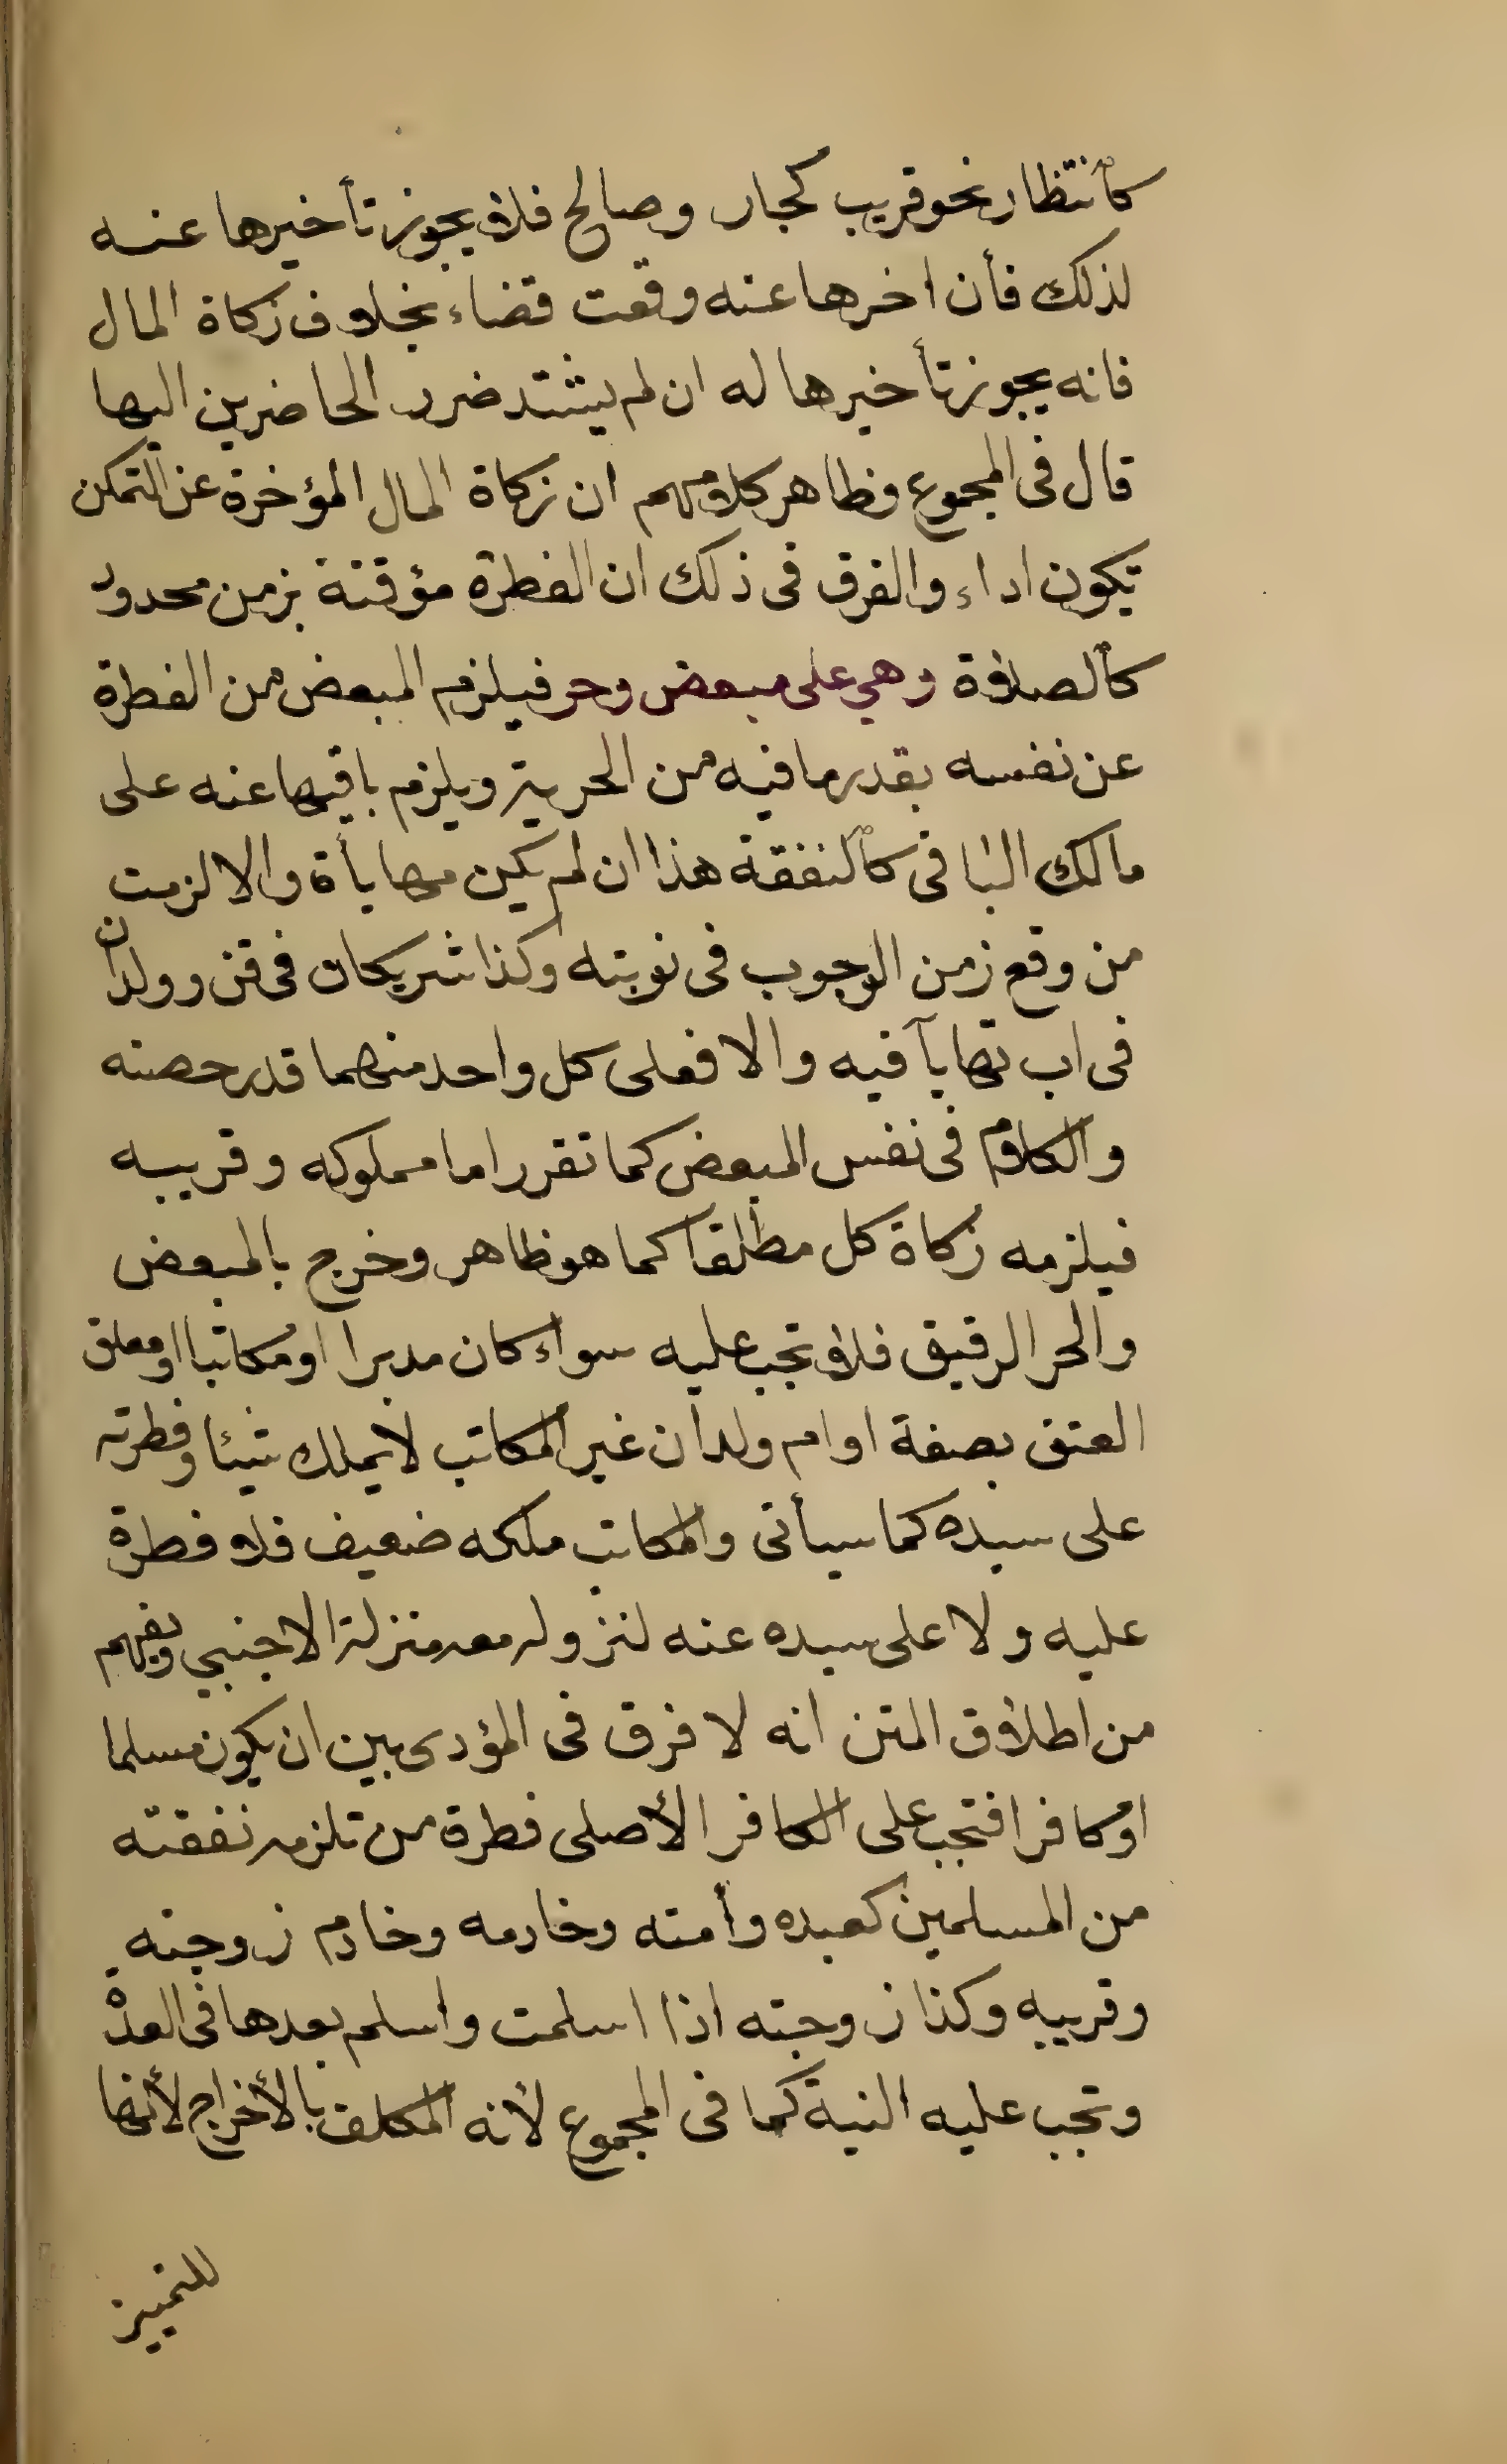 كأنتظار نحو قريب كجار وصالح فلا يجوز تأخيرها عنه
لذلك فأن اخرها عنه وقعت قضاء بخلاف زكاة المال
فانه يجوز تأخيرها له ان لم يشتد ضرر الحاضرين اليها
قال فى المجموع وظاهر كلامهم ان زكاة المال المؤخرة عن التمكن
تكون اداء والفرق فى ذلك ان الفطرة مؤقتة بزمن محدود
كألصلاة وهي على مبعض وحر فيلزم المبعض من الفطرة
عن نفسه بقدر ما فيه من الحرية ويلزم باقيها عنه على
مالك الباقى كألنفقة هذا ان لم يكن مهايأة والا لزمت
من وقع زمن الوجوب فى نوبته وكذا شريكان فى قن وولدان
فى اب تهايآ فيه والا فعلى كل واحد منهما قدر حصته
والكلام فى نفس المبعض كما تقرر اما مملوكه وقريبه
فيلزمه زكاة كل مطلقا كما هو ظاهر وخرج بالمبعض
والحر الرقيق فلا تجب عليه سواء كان مدبرا او مكاتبا او معلق
العتق بصفة او ام ولد ان غير المكاتب لا يملك شيئا وفطرته
على سيده كما سيأتى والمكاتب ملكه ضعيف فلا فطرة
عليه ولا على سيده عنه لنزوله معه منزلة الاجنبي ويفهم
من اطلاق المتن انه لا فرق فى المؤدى بين ان يكون مسلما
او كافرا فتجب على الكافر الأصلى فطرة من تلزمه نفقته
من المسلمين كعبده وأمته وخادمه وخادم زوجته
وقريبه وكذا زوجته اذا اسلمت واسلم بعدها فى العدة
وتجب عليه النية كما فى المجموع لأنه المكلف بالأخراج لأنها
للتمييز